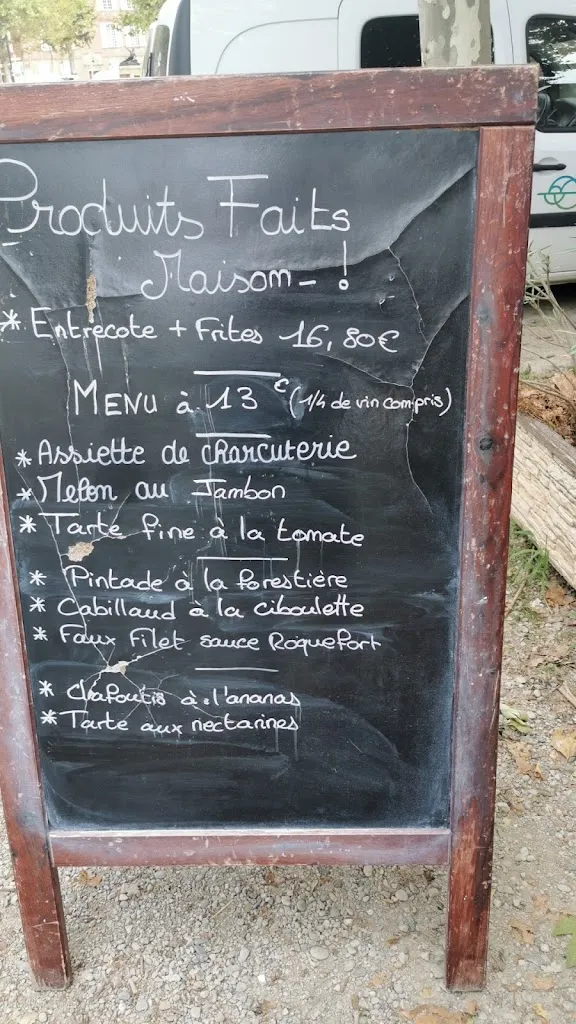 Produits Faits
Maison - !
* Entrecote + Frites 16,80€
MENU à 13€ (1/4 de vin compris)
* Assiette de charcuterie
* Melon au Jambon
* Tarte fine à la tomate
* Pintade à la forestière
* Cabillaud à la ciboulette
* Faux Filet sauce Roquefort
* Clafoutis à l'ananas
* Tarte aux nectarines